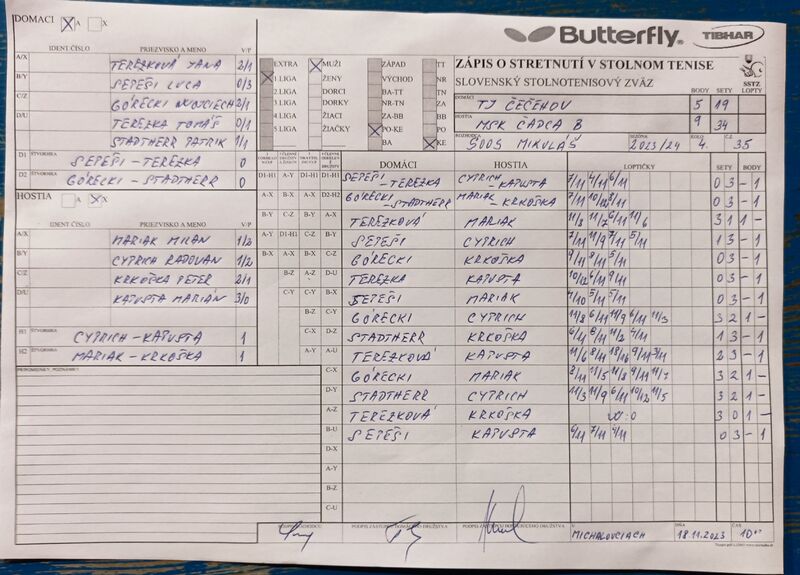 DOMACI X A X
Butterfly TIBHAR
IDENT.ČÍSLO PRIEZVISKO A MENO V/P
A/X TEREZKOVÁ JANA 2/1
B/Y ŠEPEŠI LUCA 0/3
C/Z GÓRECKI WOJCIECH 2/1
D/U TEREZKA TOMÁŠ 0/1
STADTHERR PATRIK 1/1
D1 ŠTVORHRA ŠEPEŠI - TEREZKA 0
D2 ŠTVORHRA GÓRECKI - STADTHERR 0
HOSTIA A X X
IDENT.ČÍSLO PRIEZVISKO A MENO V/P
A/X MARIAK MILAN 1/2
B/Y CYPRICH RADOVAN 1/2
C/Z KRKOŠKA PETER 2/1
D/U KAPUSTA MARIÁN 3/0
H1 ŠTVORHRA CYPRICH - KAPUSTA 1
H2 ŠTVORHRA MARIAK - KRKOŠKA 1
EXTRA MUŽI ZÁPAD TT
1.LIGA ŽENY VÝCHOD NR
2.LIGA DORCI BA-TT TN
3.LIGA DORKY NR-TN ZA
4.LIGA ŽIACI ZA-BB
5.LIGA ŽIAČKY PO-KE
BA KE
ZÁPIS O STRETNUTÍ V STOLNOM TENISE
SLOVENSKÝ STOLNOTENISOVÝ ZVÄZ
SSTZ
BODY SETY LOPTY
DOMÁCI TJ ČEČEHOV 5 19
HOSTIA MSK ČADCA B 9 34
ROZHODCA ŠOOŠ MIKULÁŠ SEZÓNA 2023/24 KOLO 4. Č.Z. 35
DOMÁCI HOSTIA LOPTIČKY SETY BODY
D1-H1 ŠEPEŠI - TEREZKA CYPRICH - KAPUSTA 7/11 4/11 6/11 0 3 - 1
D2-H2 GÓRECKI - STADTHERR MARIAK - KRKOŠKA 7/11 10/12 8/11 0 3 - 1
TEREZKOVÁ MARIAK 11/8 11/7 6/11 11/6 3 1 1 -
ŠEPEŠI CYPRICH 7/11 11/9 7/11 5/11 1 3 - 1
GÓRECKI KRKOŠKA 9/11 8/11 5/11 0 3 - 1
TEREZKA KAPUSTA 10/12 6/11 9/11 0 3 - 1
ŠEPEŠI MARIAK 5/11 5/11 0 3 - 1
GÓRECKI CYPRICH 11/8 6/11 11/9 6/11 11/3 3 2 1 -
STADTHERR KRKOŠKA 6/11 8/11 11/2 4/11 1 3 - 1
TEREZKOVÁ KAPUSTA 11/6 8/11 18/16 9/11 3/11 2 3 - 1
C-X GÓRECKI MARIAK 8/11 11/5 11/8 9/11 11/7 3 2 1 -
D-Y STADTHERR CYPRICH 11/3 11/9 6/11 10/12 11/5 3 2 1 -
A-Z TEREZKOVÁ KRKOŠKA 3 0 1 -
B-U ŠEPEŠI KAPUSTA 6/11 7/11 0 3 - 1
D-X
A-Y
B-Z
C-U
V MICHALOVCIACH DŇA 18.11.2023 ČAS 10